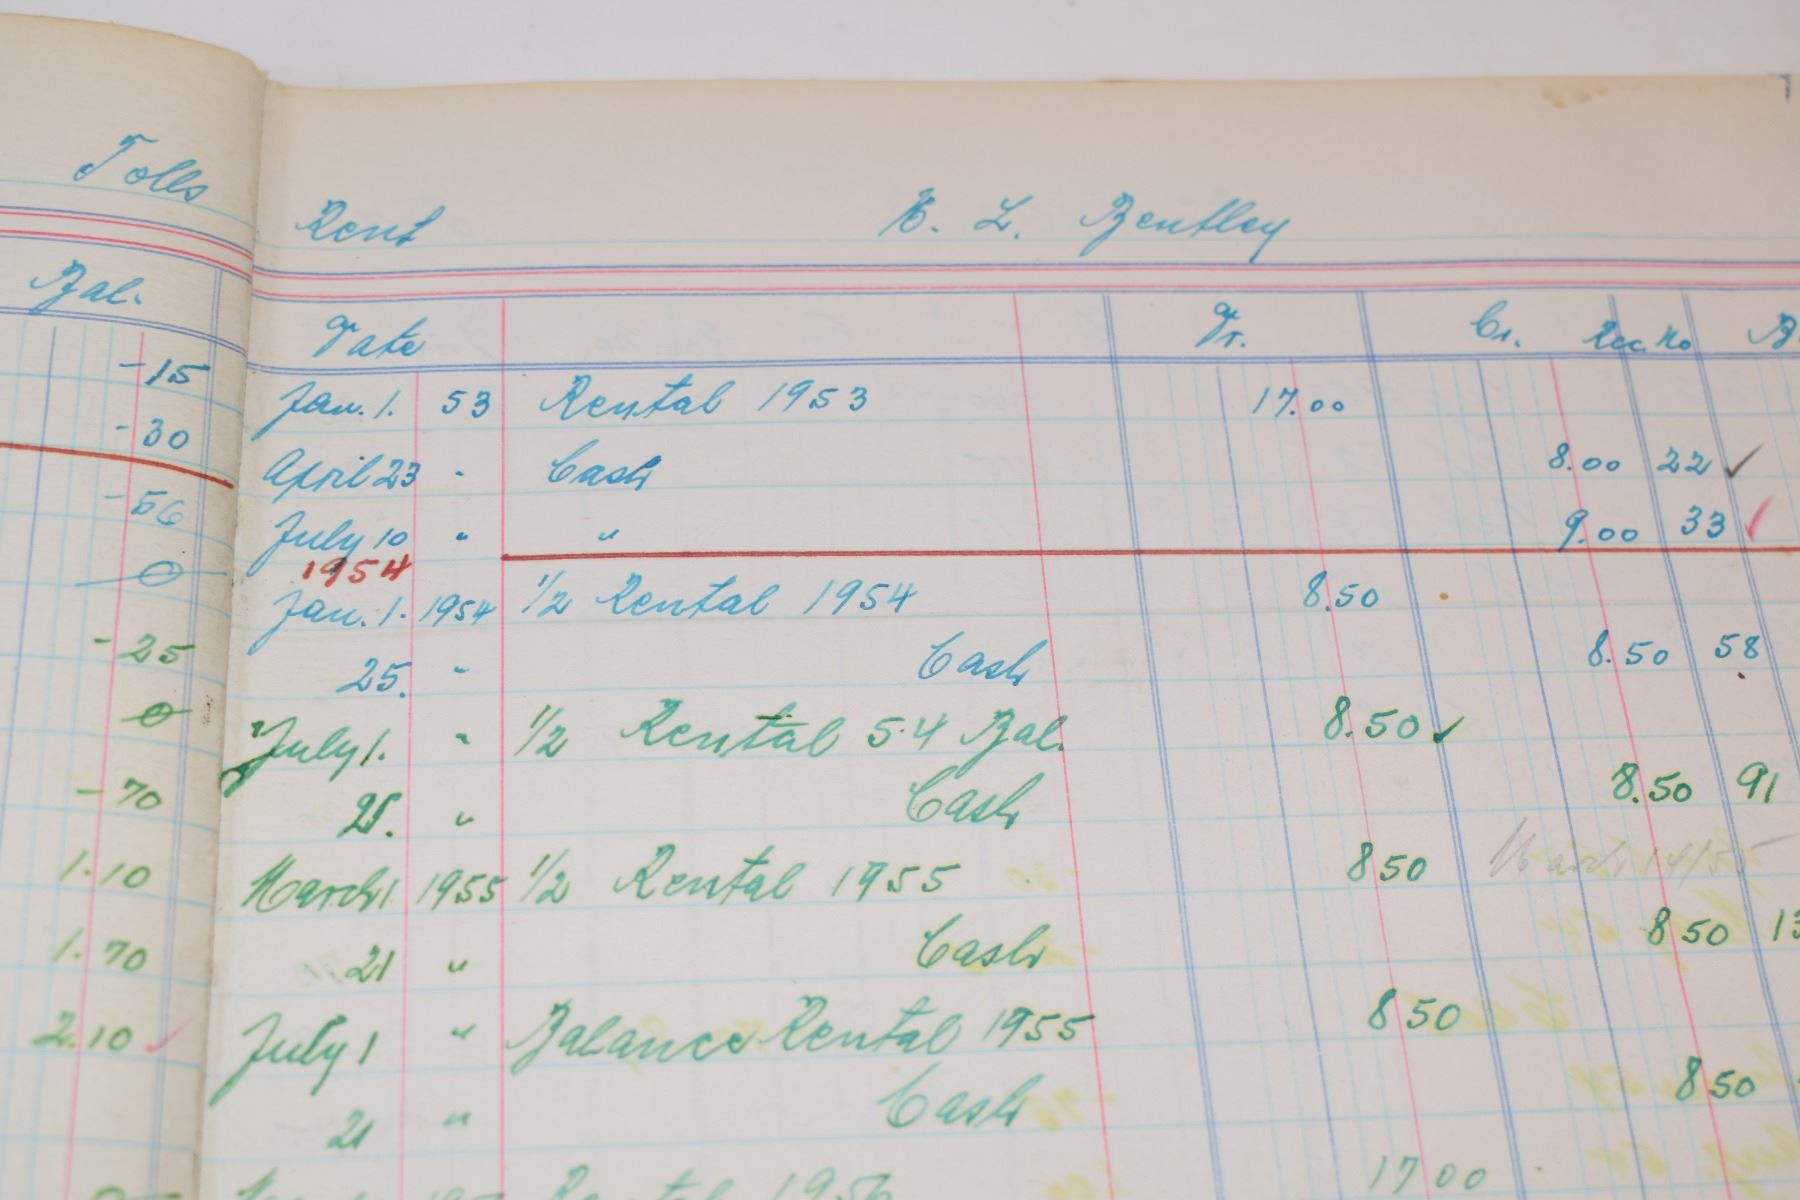 Tolls
Bal.
-15
-30
-56
0
-25
0
-70
1.10
1.70
2.10
Rent L. Bentley
Date Dr. Cr. Rec. No
Jan. 1. 53 Rental 1953 17.00
April 23 " Cash 8.00 22 ✓
July 10 " " 9.00 33 ✓
1954
Jan. 1. 1954 1/2 Rental 1954 8.50
25. " Cash 8.50 58
July 1. " 1/2 Rental 54 Bal. 8.50 ✓
" Cash 8.50 91
March 1 1955 1/2 Rental 1955 8 50 March 14/55
21 " Cash 8 50
July 1 " Balance Rental 1955 8 50
21 " Cash 8 50
Rental 1956 17 00